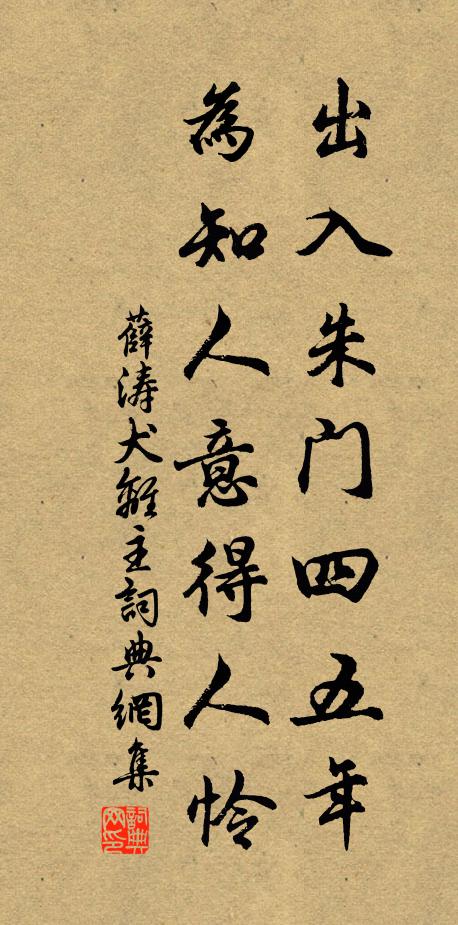 出入朱门四五年
為知人意得人怜
薛涛犬離主詞典網集
詞典网印